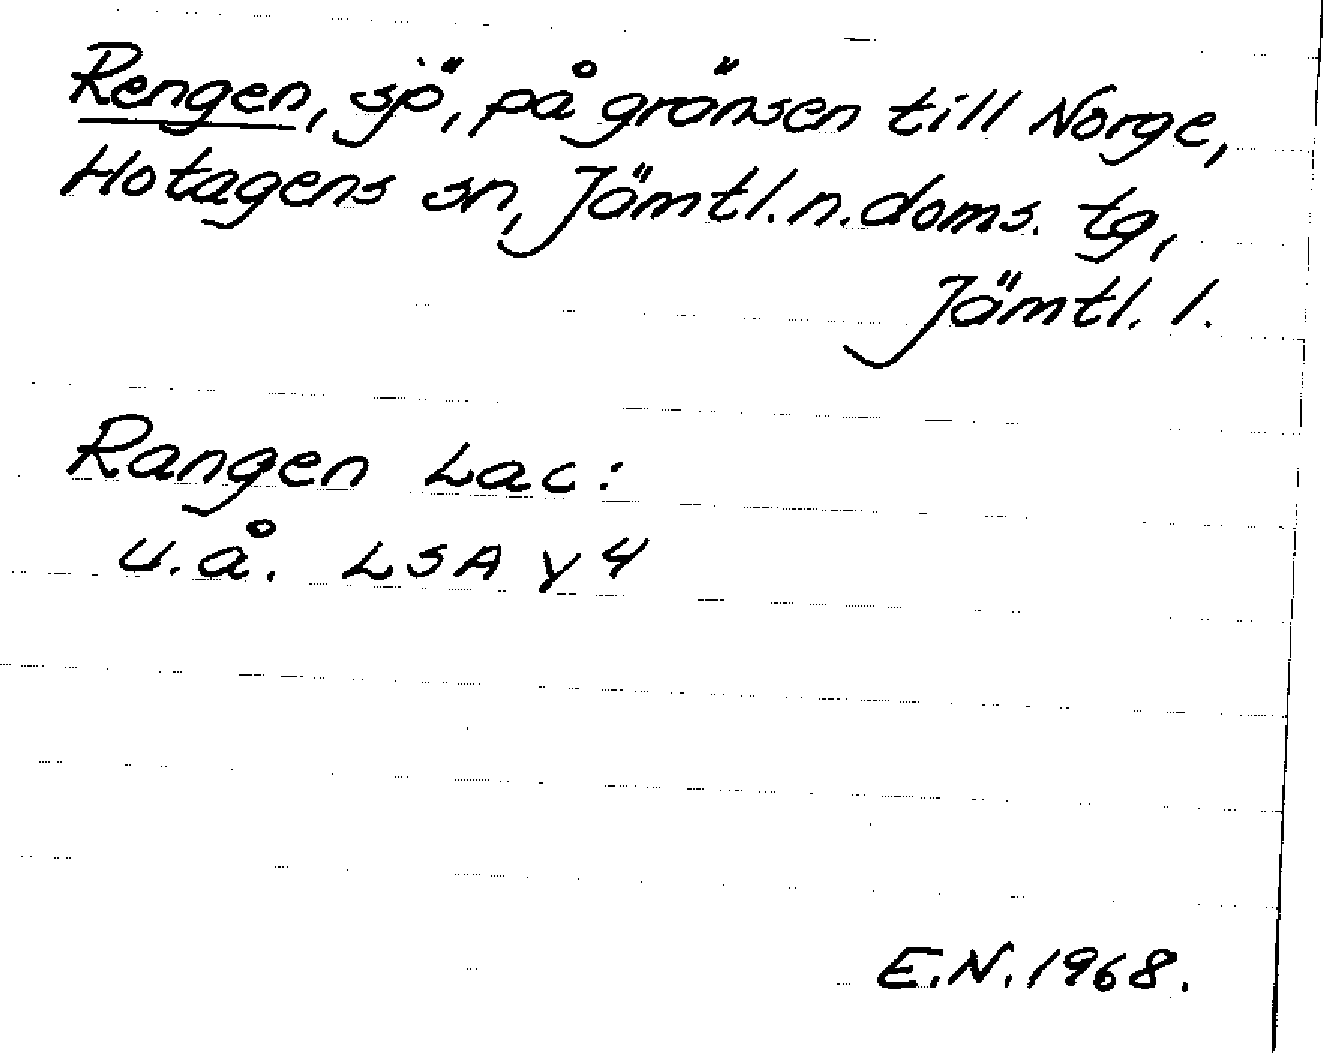 Rengen, sjö, på gränsen till Norge,
Hotagens sn, Jämtl. n. doms. tg,
Jämtl. l.
Rangen Lac:
u.å. LSA Y 4
E.N. 1968.